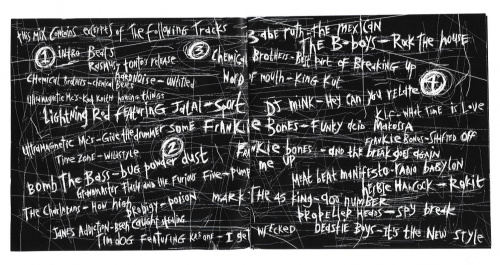 this mix contains excerpts of the following tracks
① intro Beats
Rasmus - tonto's release
Chemical Brothers - chemical beats
Barde noise - untitled
Ultramagnetic Mc's - Kool Keith housing things
Lightning Rod featuring Jalal - Sport
Ultramagnetic Mc's - Give the drummer some
② 
Time Zone - wildstyle
Bomb The Bass - bug powder dust
Grandmaster Flash and the Furious Five - pump me up
The Charlatans - How high
Prodigy - poison
Janes Addiction - Been caught stealing
Tim dog featuring KRS one - I get wrecked
③ Babe ruth - the mexican
Chemical Brothers - Best part of Breaking up
The B-boys - Rock the house
Word of mouth - King Kut
④
DJ mink - Hey can you relate
KLF - what Time is Love
Frankie Bones - Funky acid Makossa
Frankie Bones - Shifted off
Frankie bones - and the break goes again
meat beat manifesto - radio babylon
herbie Hancock - Rokit
mark The 45 king - 900 number
propeller heads - spy break
Beastie Boys - It's the New style